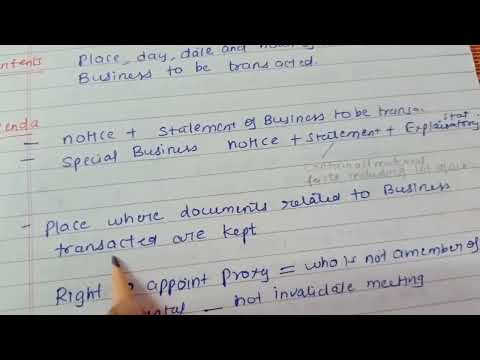 ntents Place, day, date and
Business to be transacted.
enda
– notice + statement of Business to be transa.
– Special Business notice + statement + Explanatory stat
– Place where documents related to Business
transacted are kept
Right appoint Proxy = who is not a member of
not invalidate meeting